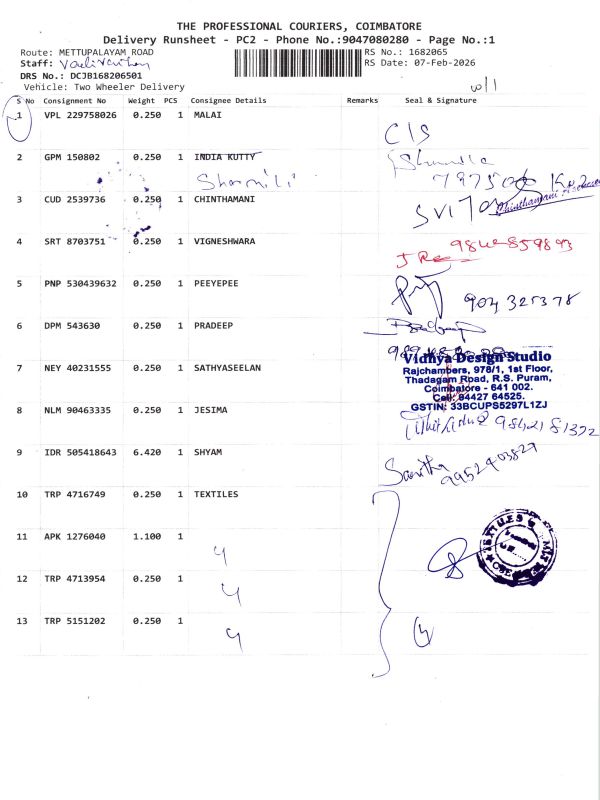 THE PROFESSIONAL COURIERS, COIMBATORE
Delivery Runsheet - PC2 - Phone No.:9047080280 - Page No.:1
Route: METTUPALAYAM ROAD
RS No.: 1682065
Staff:
RS Date: 07-Feb-2026
DRS No.: DCJB168206501
Vehicle: Two Wheeler Delivery
S No Consignment No Weight PCS Consignee Details Remarks Seal & Signature
1 VPL 229758026 0.250 1 MALAI
C/S
2 GPM 150802 0.250 1 INDIA KUTTY
Sharmili
3 CUD 2539736 0.250 1 CHINTHAMANI
4 SRT 8703751 0.250 1 VIGNESHWARA
5 PNP 530439632 0.250 1 PEEYEPEE
904 325378
6 DPM 543630 0.250 1 PRADEEP
Vidhya Design Studio
7 NEY 40231555 0.250 1 SATHYASEELAN
Rajchambers, 978/1, 1st Floor,
Thadagam Road, R.S. Puram,
Coimbatore - 641 002.
Cell: 84427 64525.
GSTIN: 33BCUPS5297L1ZJ
8 NLM 90463335 0.250 1 JESIMA
9 IDR 505418643 6.420 1 SHYAM
Savitha 9952403827
10 TRP 4716749 0.250 1 TEXTILES
11 APK 1276040 1.100 1
12 TRP 4713954 0.250 1
13 TRP 5151202 0.250 1